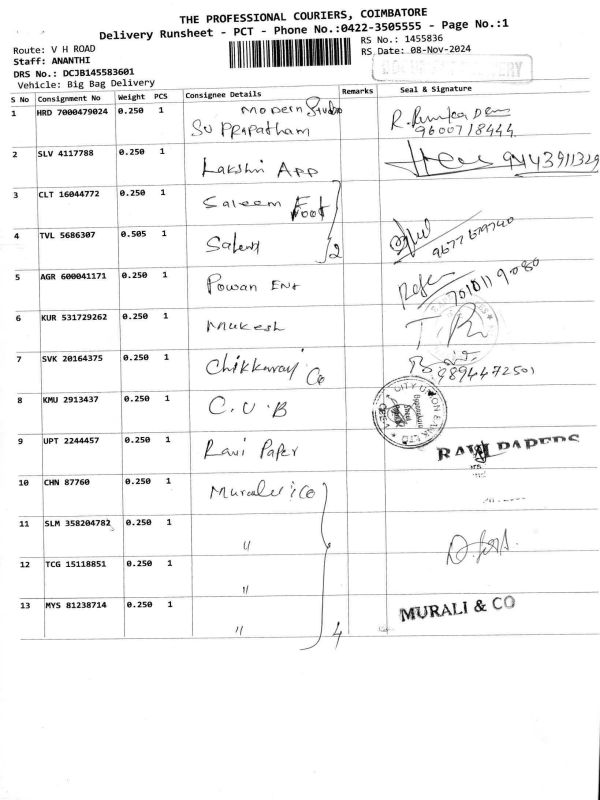 THE PROFESSIONAL COURIERS, COIMBATORE
Delivery Runsheet - PCT - Phone No.:0422-3505555 - Page No.:1
Route: V H ROAD
RS No.: 1455836
Staff: ANANTHI
RS Date: 08-Nov-2024
DRS No.: DCJB145583601
Vehicle: Big Bag Delivery
S No Consignment No Weight PCS Consignee Details Remarks Seal & Signature
1 HRD 7000479024 0.250 1 Modern Studio
9600718444
2 SLV 4117788 0.250 1 Lakshmi App
3 CLT 16044772 0.250 1 Saleem Foot
4 TVL 5686307 0.505 1 Saleem 2
5 AGR 600041171 0.250 1 Powan Ent
6 KUR 531729262 0.250 1 Mukesh
7 SVK 20164375 0.250 1 Co 9894472501
8 KMU 2913437 0.250 1 C.U.B CITY UNION BANK LTD
9 UPT 2244457 0.250 1 Ravi Paper RAVI PAPERS
10 CHN 87760 0.250 1 Murali & Co
11 SLM 358204782 0.250 1 "
12 TCG 15118851 0.250 1 "
13 MYS 81238714 0.250 1 " 4 MURALI & CO